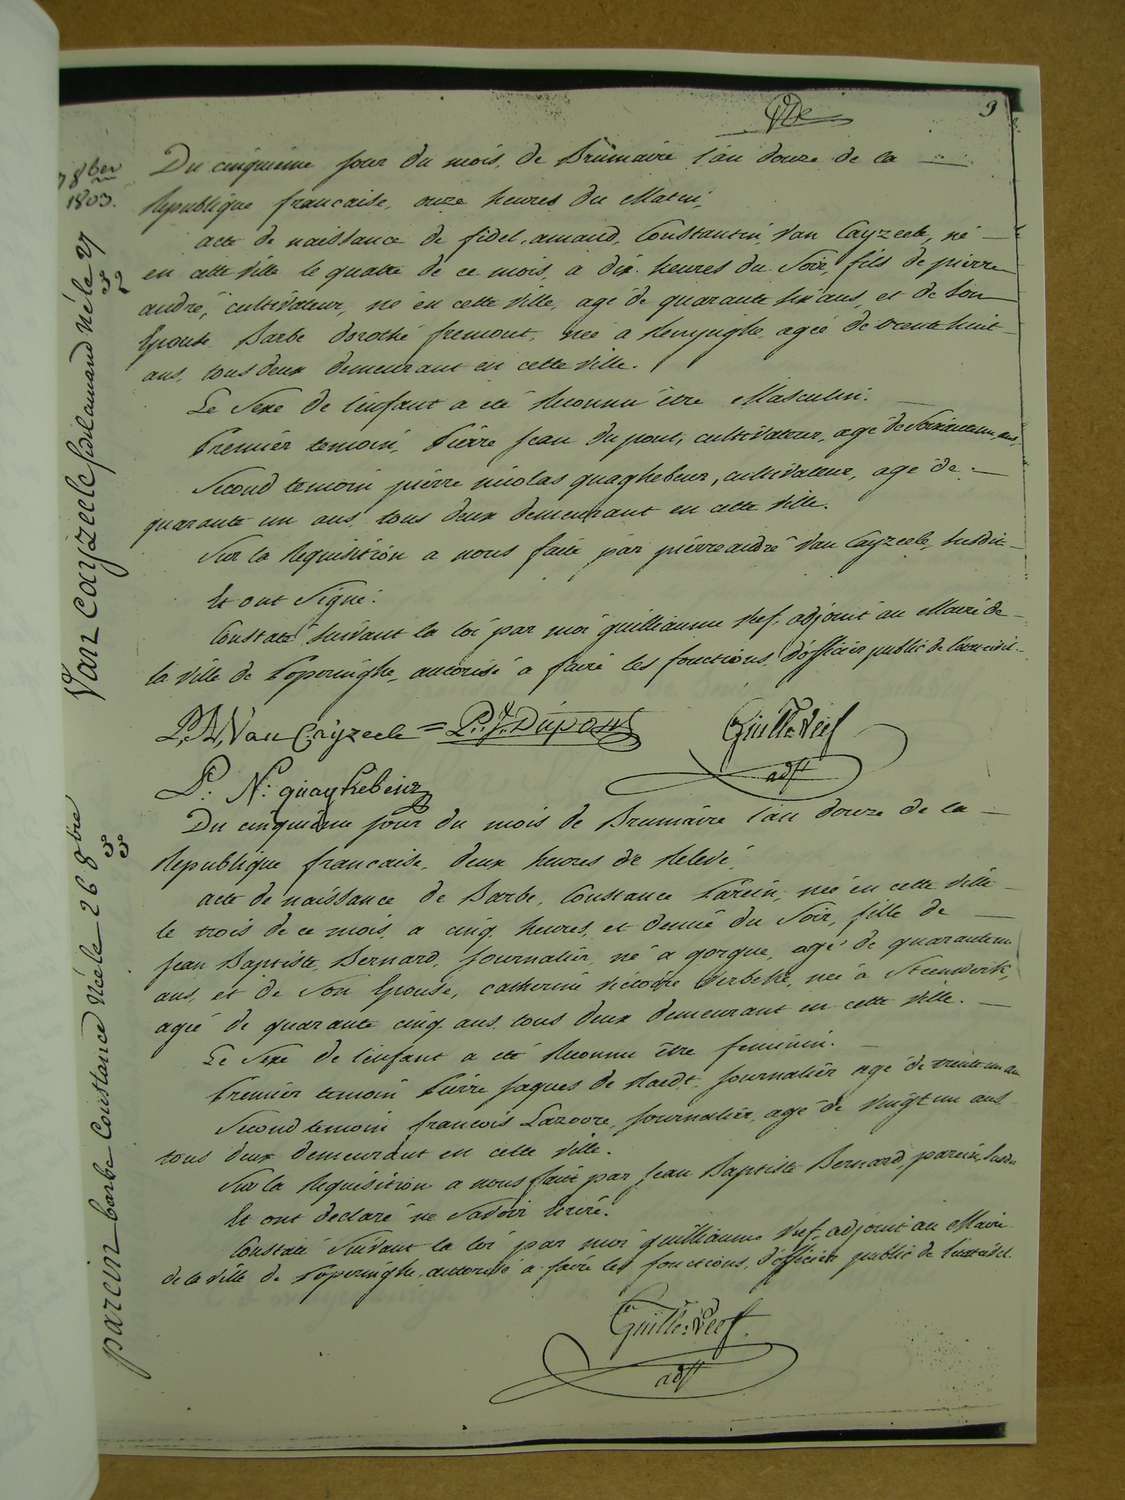 9
8ber
1803.
Van Cayzeele fidel amand né le 27
Du cinquième jour du mois de Brumaire l'an douze de la
Republique francaise, onze heures du Matin,
acte de naissance de fidel, amand, Constantin, Van Cayzeele, né
en cette ville le quatre de ce mois, a dix heures du Soir, fils de pierre
andré, cultivateur, né en cette ville, agé de quarante six ans, et de Son
Epouse Barbe dorothé fremont, née a Renynghe, agée de trente huit
ans, tous deux demeurant en cette ville.
Le Sexe de l'enfant a eté Reconnu être Masculin.
Premier temoin, Pierre Jean Dupont, cultivateur, agé de
Second temoin pierre nicolas quaghebeur, cultivateur, agé de
quarante un ans, tous deux demeurant en cette ville.
Sur la Requisition a nous faite par pierre andré Van Cayzeele, Susdit
Et ont Signé.
Constaté Suivant la loi par moi guilliaume Reef, adjoint au Maire de
la ville de Poperinghe, autorisé a faire les fonctions d'officier public de l'etat civil.
P. A. Van Cayzeele = P. J. Dupont Guille Reef
adjt
P: N: quaghebeur
parein barbe Constance Née le 26 8bre
Du cinquième jour du mois de Brumaire l'an douze de la
Republique francaise, deux heures de Relevé,
acte de naissance de Barbe, Constance Parein, née en cette ville
le trois de ce mois, a cinq heures et demie du Soir, fille de
Jean Baptiste, Bernard, journalier, né a gorgue, agé de quarante un
ans, et de Son Epouse, catherine victoire Verbeke, née a Steenwerk,
agée de quarante cinq ans, tous deux demeurant en cette ville.
Le Sexe de l'enfant a eté Reconnu être feminin.
Premier temoin Pierre Jaques de Raedt, journalier agé de trente un ans
Second temoin francois Lazoore, journalier, agé de vingt un ans
tous deux demeurant en cette ville.
Sur la Requisition a nous faite par Jean Baptiste Bernard parein, Susdit
Et ont declaré ne Savoir Ecrire.
Constaté Suivant la loi par moi guilliaume Reef, adjoint au Maire
de la ville de Poperinghe, autorisé a faire les fonctions d'officier public de l'etat civil.
Guille Reef
adjt